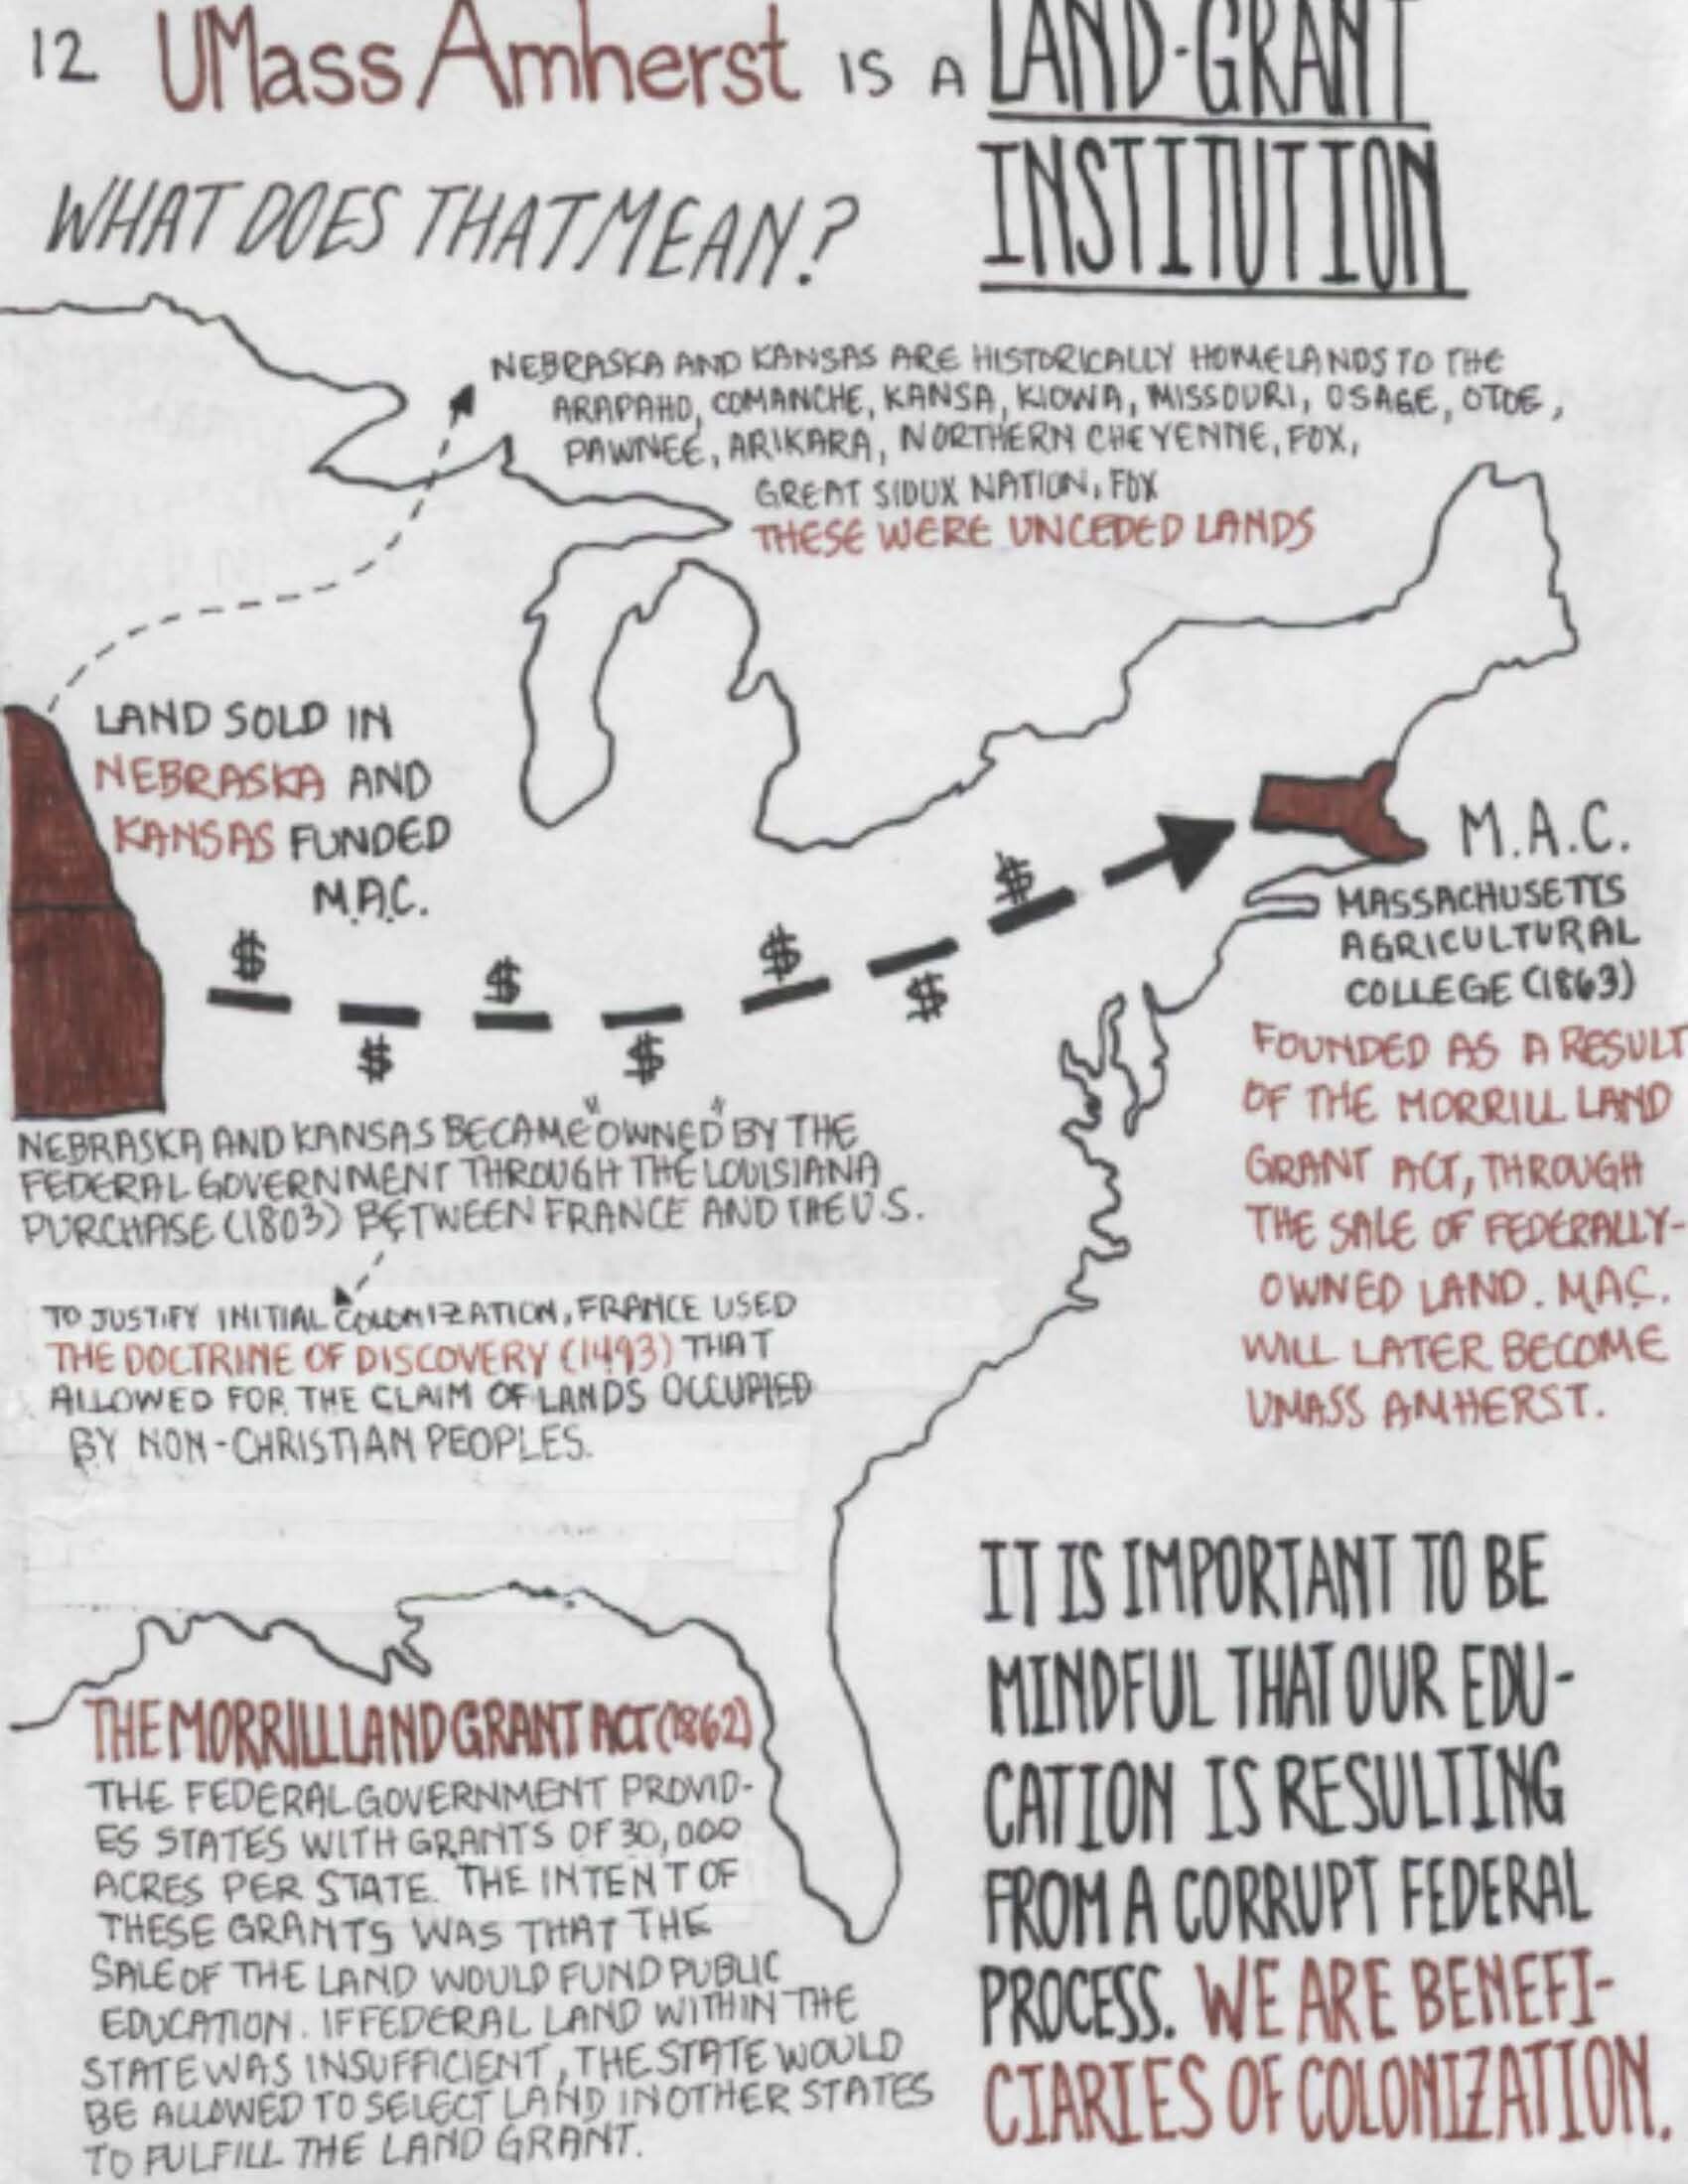 12 UMass Amherst IS A LAND-GRANT
INSTITUTION
WHAT DOES THAT MEAN?
NEBRASKA AND KANSAS ARE HISTORICALLY HOMELANDS TO THE
ARAPAHO, COMANCHE, KANSA, KIOWA, MISSOURI, OSAGE, OTOE,
PAWNEE, ARIKARA, NORTHERN CHEYENNE, FOX,
GREAT SIOUX NATION, FOX
THESE WERE UNCEDED LANDS
LAND SOLD IN
NEBRASKA AND
KANSAS FUNDED
M.A.C.
$ $ $ $ $ $ $
M.A.C.
MASSACHUSETTS
AGRICULTURAL
COLLEGE (1863)
FOUNDED AS A RESULT
OF THE MORRILL LAND
GRANT ACT, THROUGH
THE SALE OF FEDERALLY-
OWNED LAND. M.A.C.
WILL LATER BECOME
UMASS AMHERST.
NEBRASKA AND KANSAS BECAME "OWNED" BY THE
FEDERAL GOVERNMENT THROUGH THE LOUISIANA
PURCHASE (1803) BETWEEN FRANCE AND THE U.S.
TO JUSTIFY INITIAL COLONIZATION, FRANCE USED
THE DOCTRINE OF DISCOVERY (1493) THAT
ALLOWED FOR THE CLAIM OF LANDS OCCUPIED
BY NON-CHRISTIAN PEOPLES.
THE MORRILL LAND GRANT ACT (1862)
THE FEDERAL GOVERNMENT PROVID-
ES STATES WITH GRANTS OF 30,000
ACRES PER STATE. THE INTENT OF
THESE GRANTS WAS THAT THE
SALE OF THE LAND WOULD FUND PUBLIC
EDUCATION. IF FEDERAL LAND WITHIN THE
STATE WAS INSUFFICIENT, THE STATE WOULD
BE ALLOWED TO SELECT LAND IN OTHER STATES
TO FULFILL THE LAND GRANT.
IT IS IMPORTANT TO BE
MINDFUL THAT OUR EDU-
CATION IS RESULTING
FROM A CORRUPT FEDERAL
PROCESS. WE ARE BENEFI-
CIARIES OF COLONIZATION.